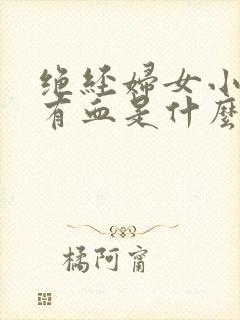 绝经婦女小
有血是什麽
橘阿甯